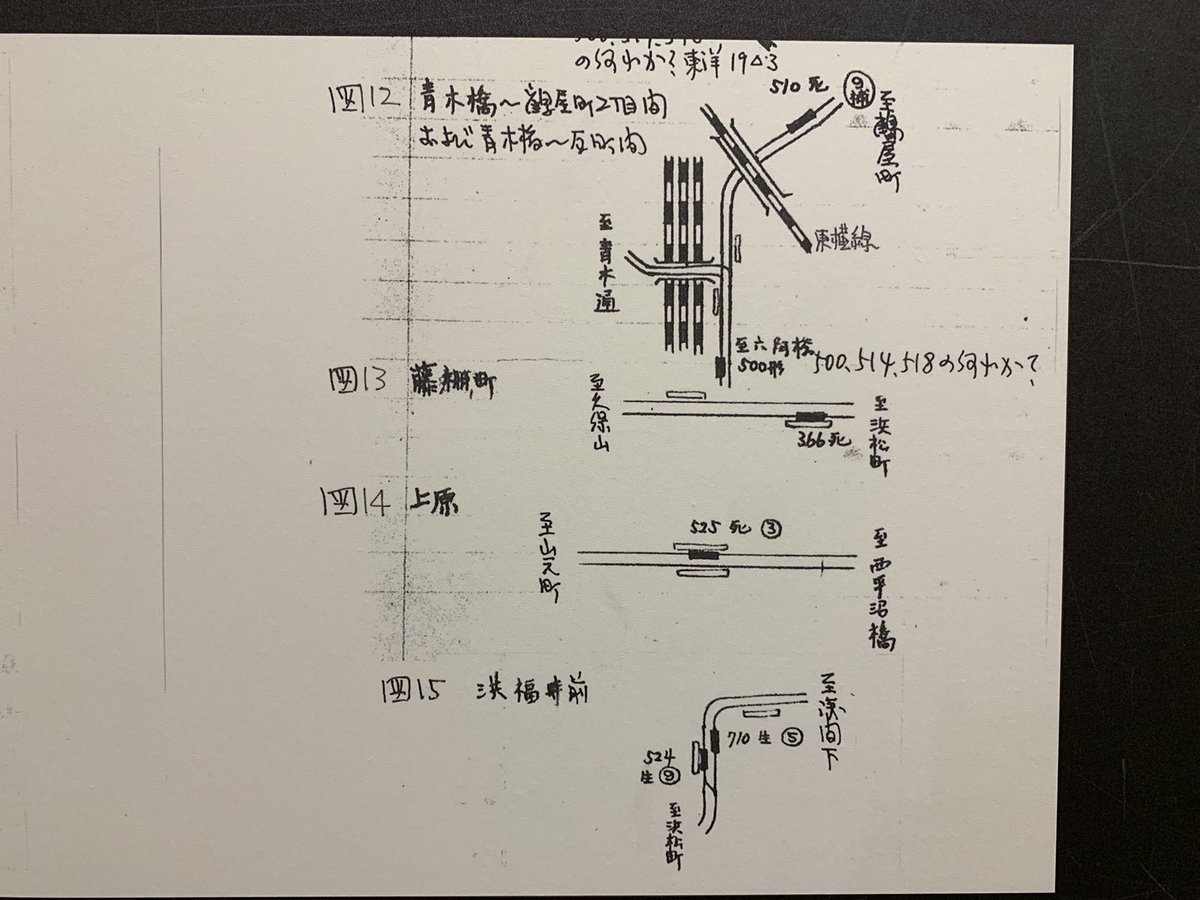 の何れか? 東洋 19△3
図12 青木橋～鶴屋町2丁目間
および青木橋～反町間
510 死
9補
至鶴屋町
東横線
至青木通
至六角橋
500形
500、514、518の何れか?
図13 藤棚町
至久保山
至浜松町
366 死
図14 上原
525 死 ③
至山元町
至西平沼橋
図15 洪福寺前
至浅間下
710 生 ⑤
524
生 ⑨
至浜松町